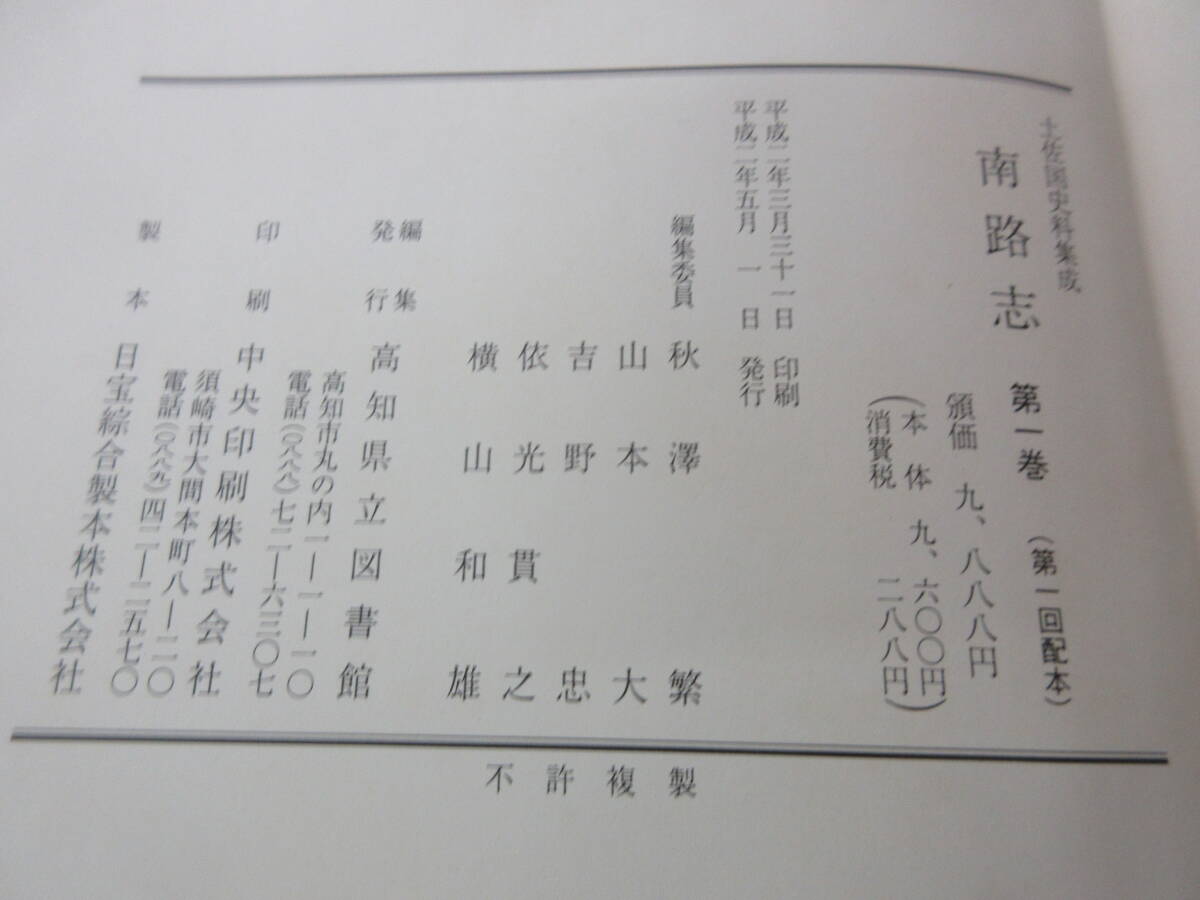 土佐国史料集成
南路志 第一巻 (第一回配本)
頒価 九、八八八円
(本体 九、六〇〇円
消費税 二八八円)
平成二年三月三十一日 印刷
平成二年五月 一 日 発行
編集委員 秋澤 繁
山本 大
吉野 忠
依光貫之
横山和雄
編集
発行 高知県立図書館
高知市丸の内一―一―一〇
電話(〇八八八)七二―六三〇七
印刷 中央印刷株式会社
須崎市大間本町八―二〇
電話(〇八八九)四二―二五七〇
製本 日宝綜合製本株式会社
不許複製